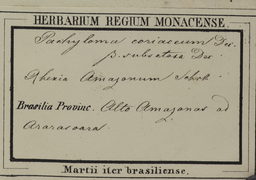 HERBARIUM REGIUM MONACENSE.
Pachyloma coriaceum Des.
β. subsetosa Des
Rhexia Amazonum Schrk
Brasilia Provinc. Alto Amazonas ad
Araracoara.
Martii iter brasiliense.